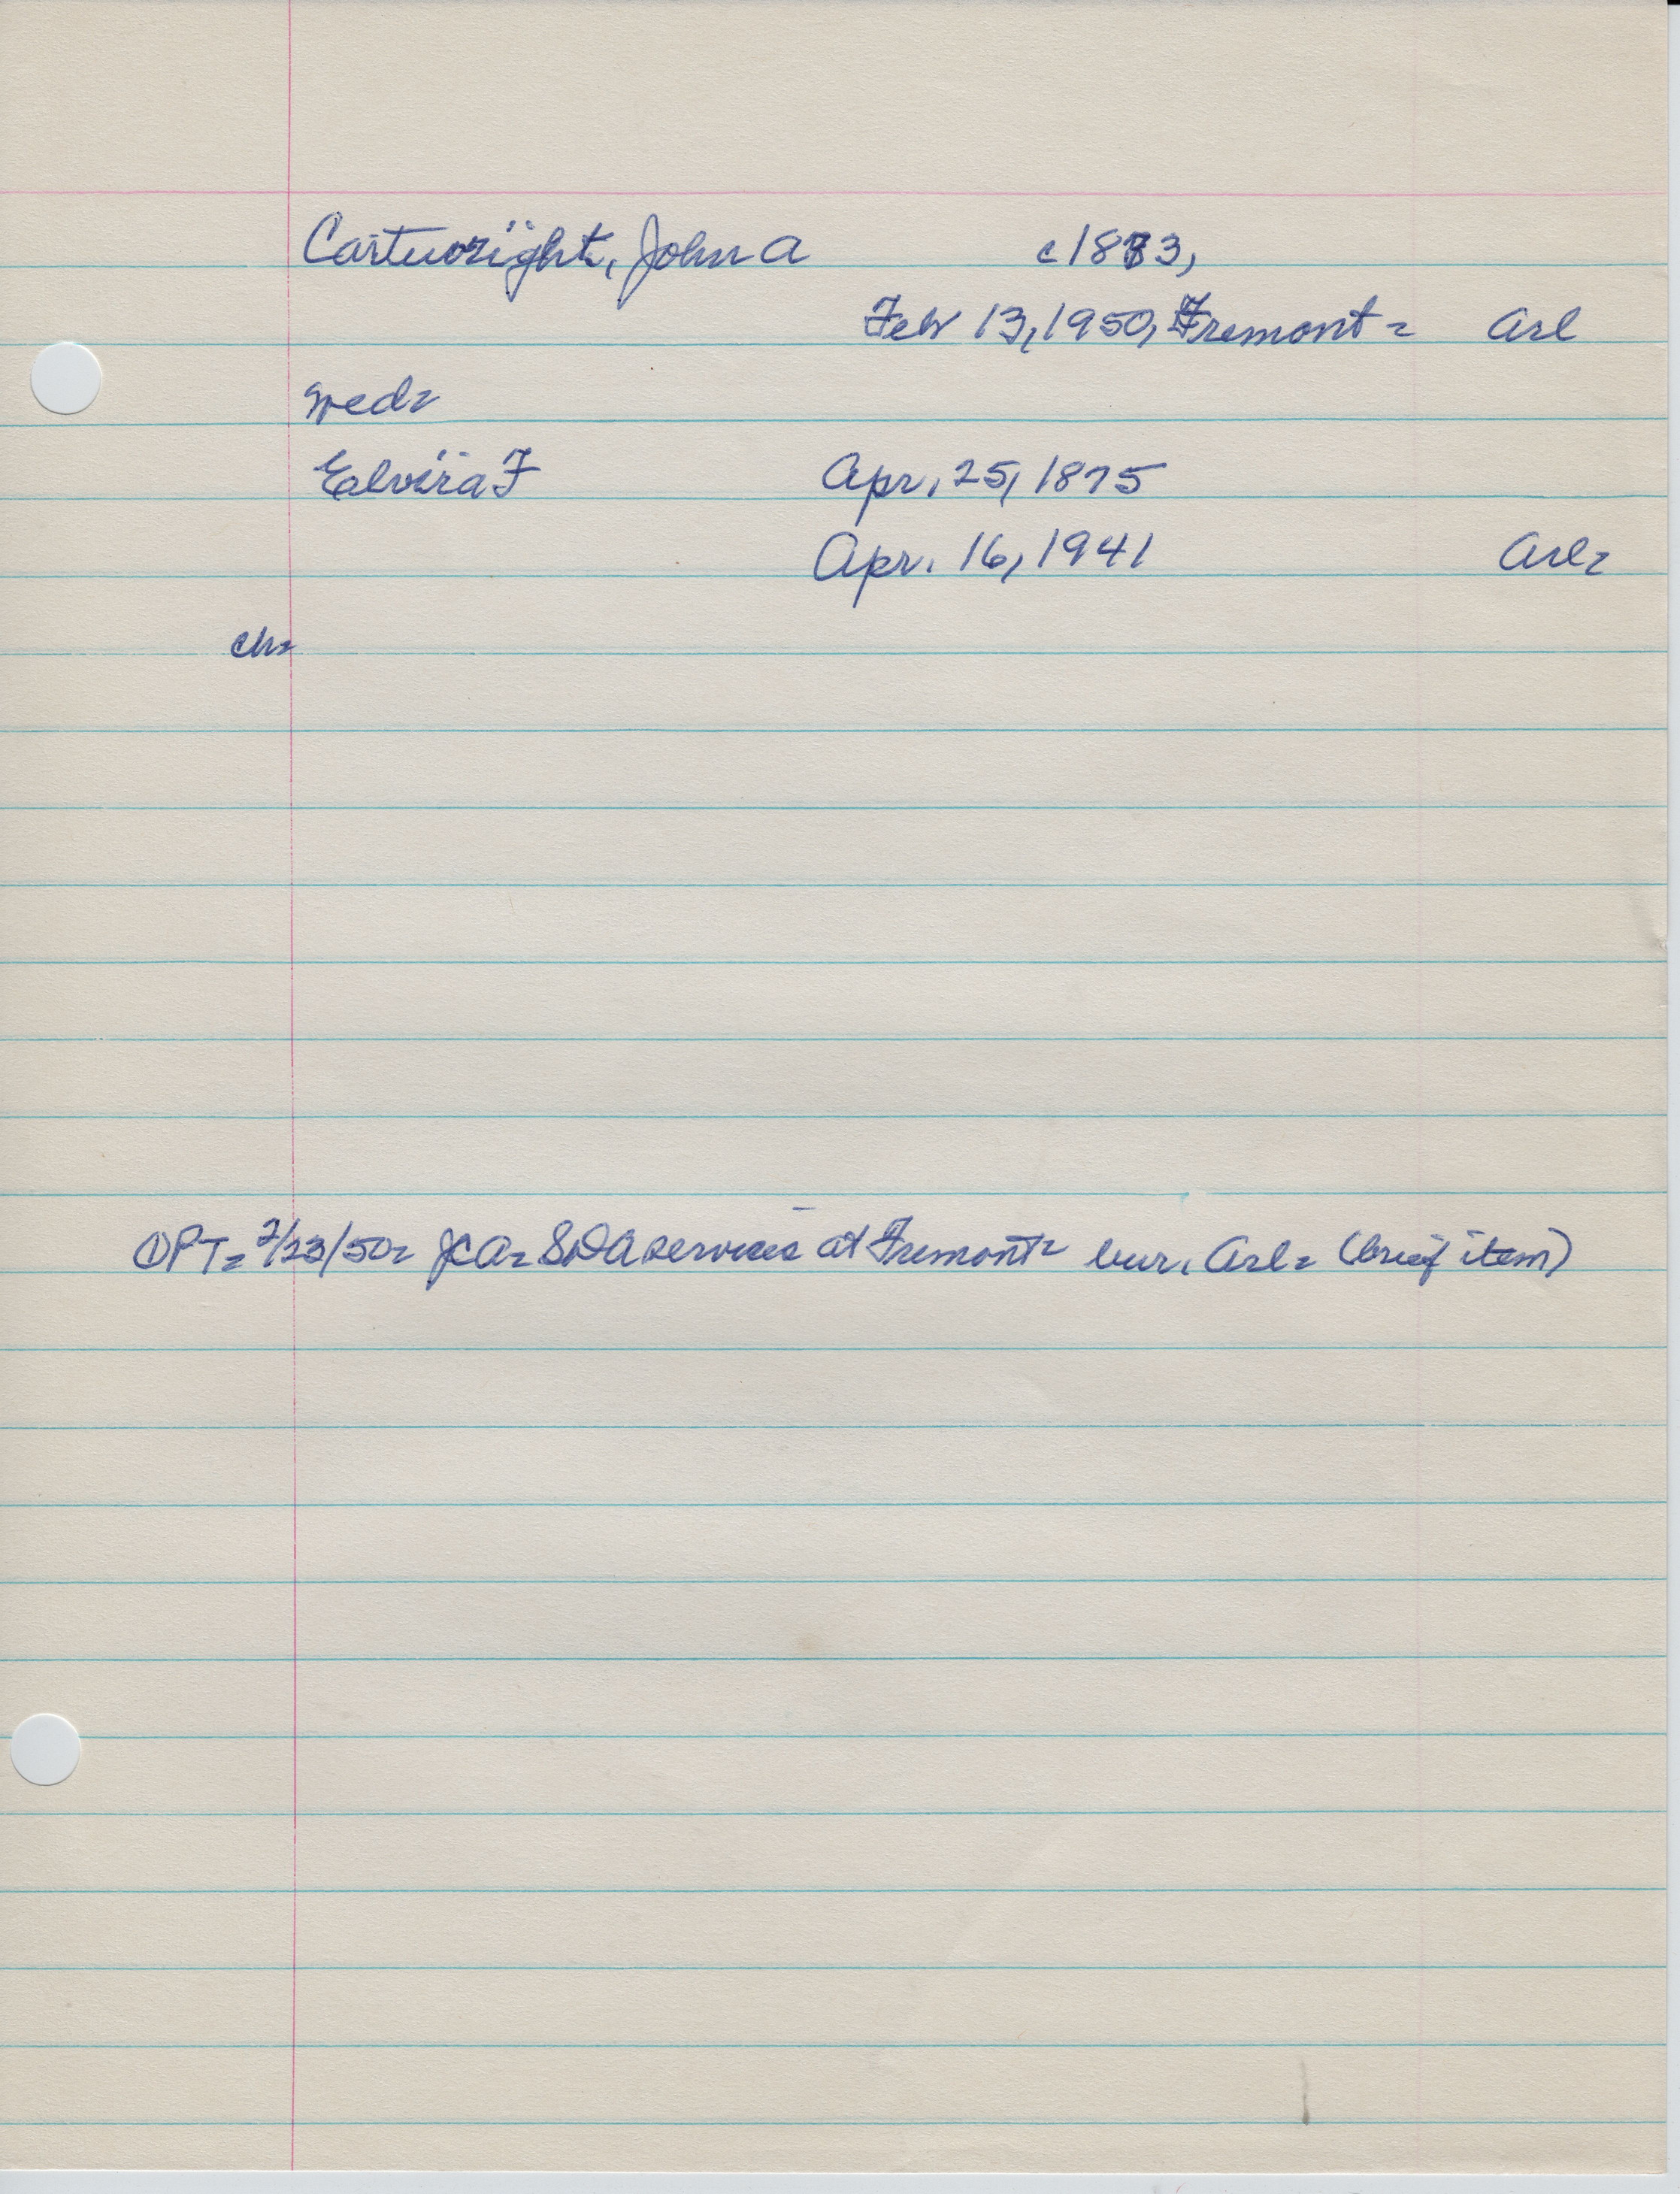 Cartwright, John A c1873,
Feb 13, 1950, Fremont = Arl
wed=
Elvira F Apr. 25, 1875
Apr. 16, 1941 Arl=
ch=
① PT= 2/23/50= JCA= SDA services at Fremont= bur. Arl= (brief item)